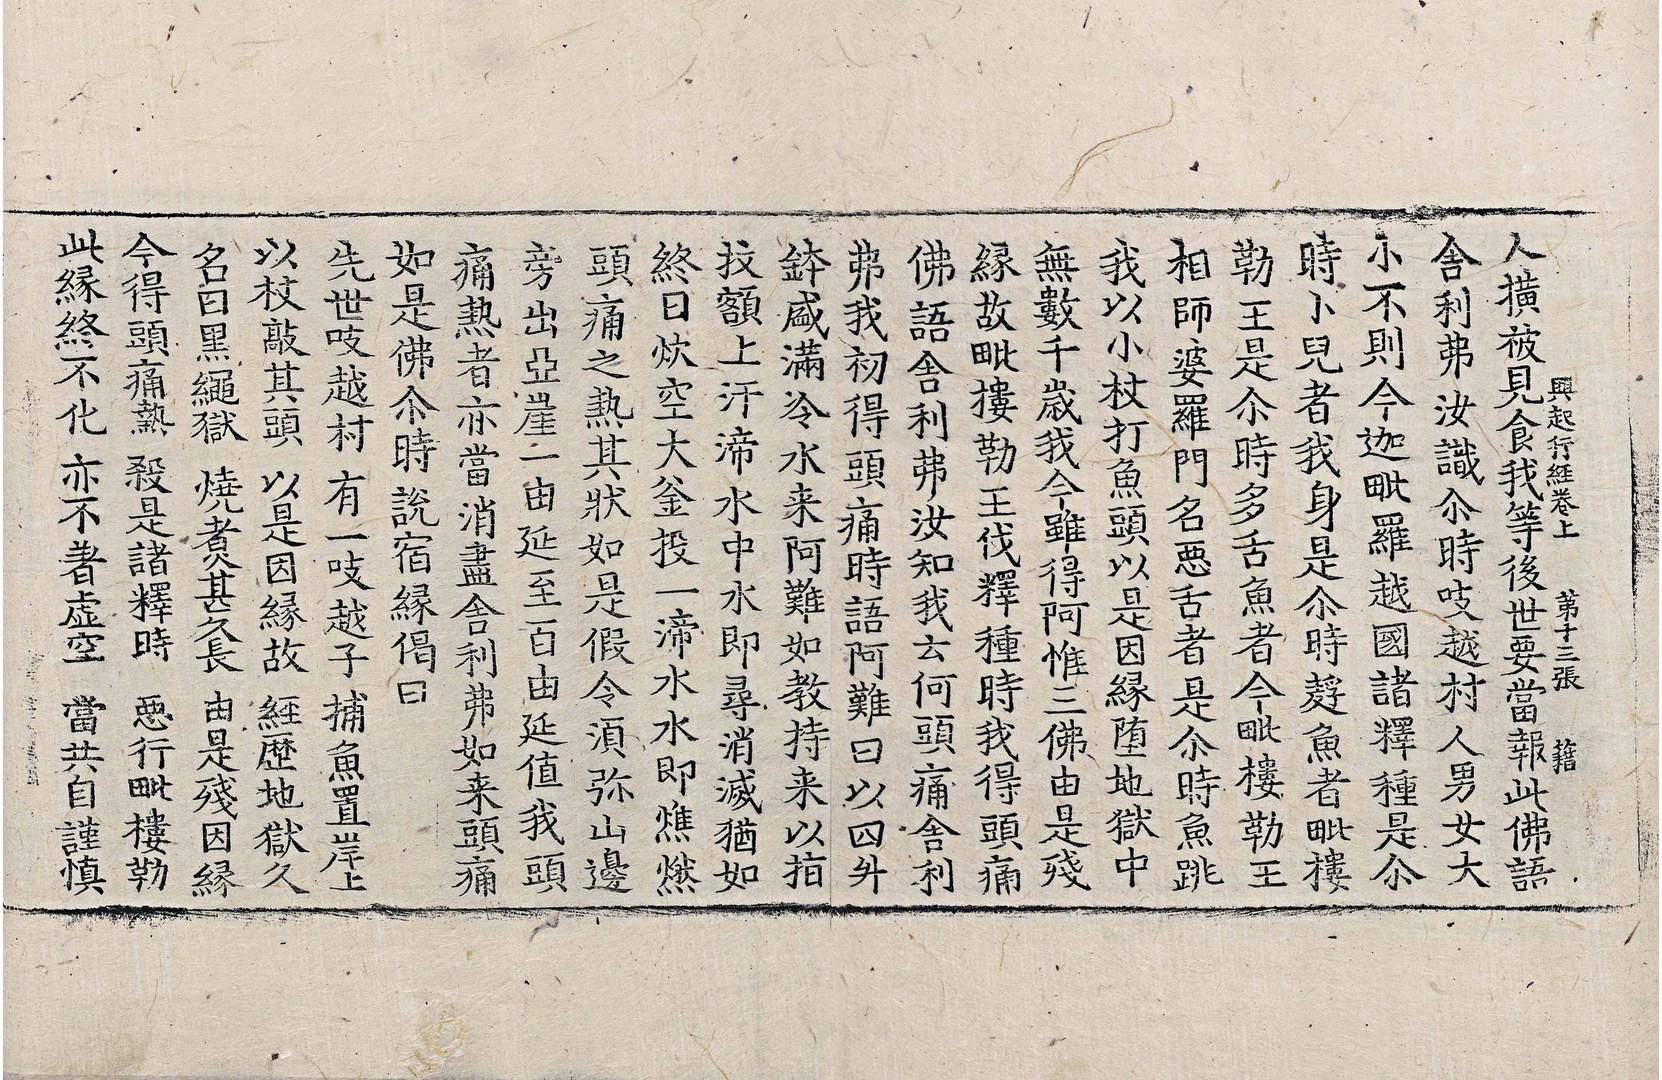 興起行經卷上 第十三張 籍
人擴被見食我等後世要當報此佛語
舍利弗汝識尒時吱越村人男女大
小不則今迦毗羅越國諸釋種是尒
時卜兒者我身是尒時𪍿魚者毗樓
勒王是尒時多舌魚者今毗樓勒王
相師婆羅門名惡舌者是尒時魚跳
我以小杖打魚頭以是因緣墮地獄中
無數千歲我今雖得阿惟三佛由是殘
緣故毗摟勒王伐釋種時我得頭痛
佛語舍利弗汝知我云何頭痛舍利
弗我初得頭痛時語阿難曰以四升
鉢盛滿冷水来阿難如教持来以指
抆額上汗渧水中水即尋消滅猶如
終日炊空大釜投一渧水水即燋燃
頭痛之熱其狀如是假令湏弥山邊
旁出亞崖一由延至百由延值我頭
痛熱者亦當消盡舍利弗如来頭痛
如是佛尒時說宿緣偈曰
先世吱越村 有一吱越子 捕魚置岸上
以杖敲其頭 以是因緣故 經歷地獄久
名曰黑繩獄 燒煮甚久長 由是殘因緣
今得頭痛熱 殺是諸釋時 惡行毗樓勒
此緣終不化 亦不著虛空 當共自謹慎